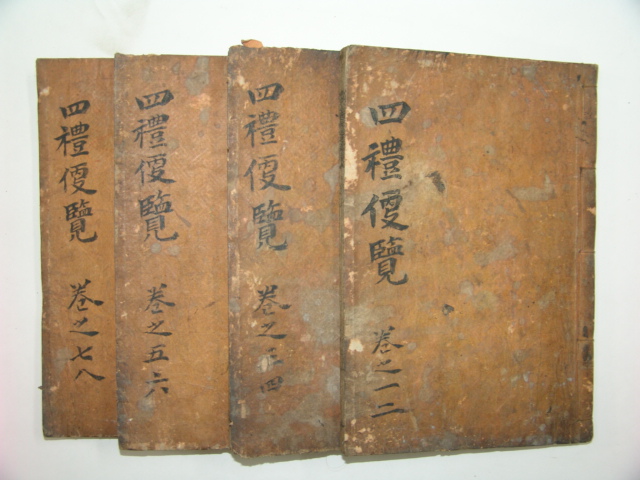 四禮便覽 卷之一二
四禮便覽 卷之三四
四禮便覽 卷之五六
四禮便覽 卷之七八